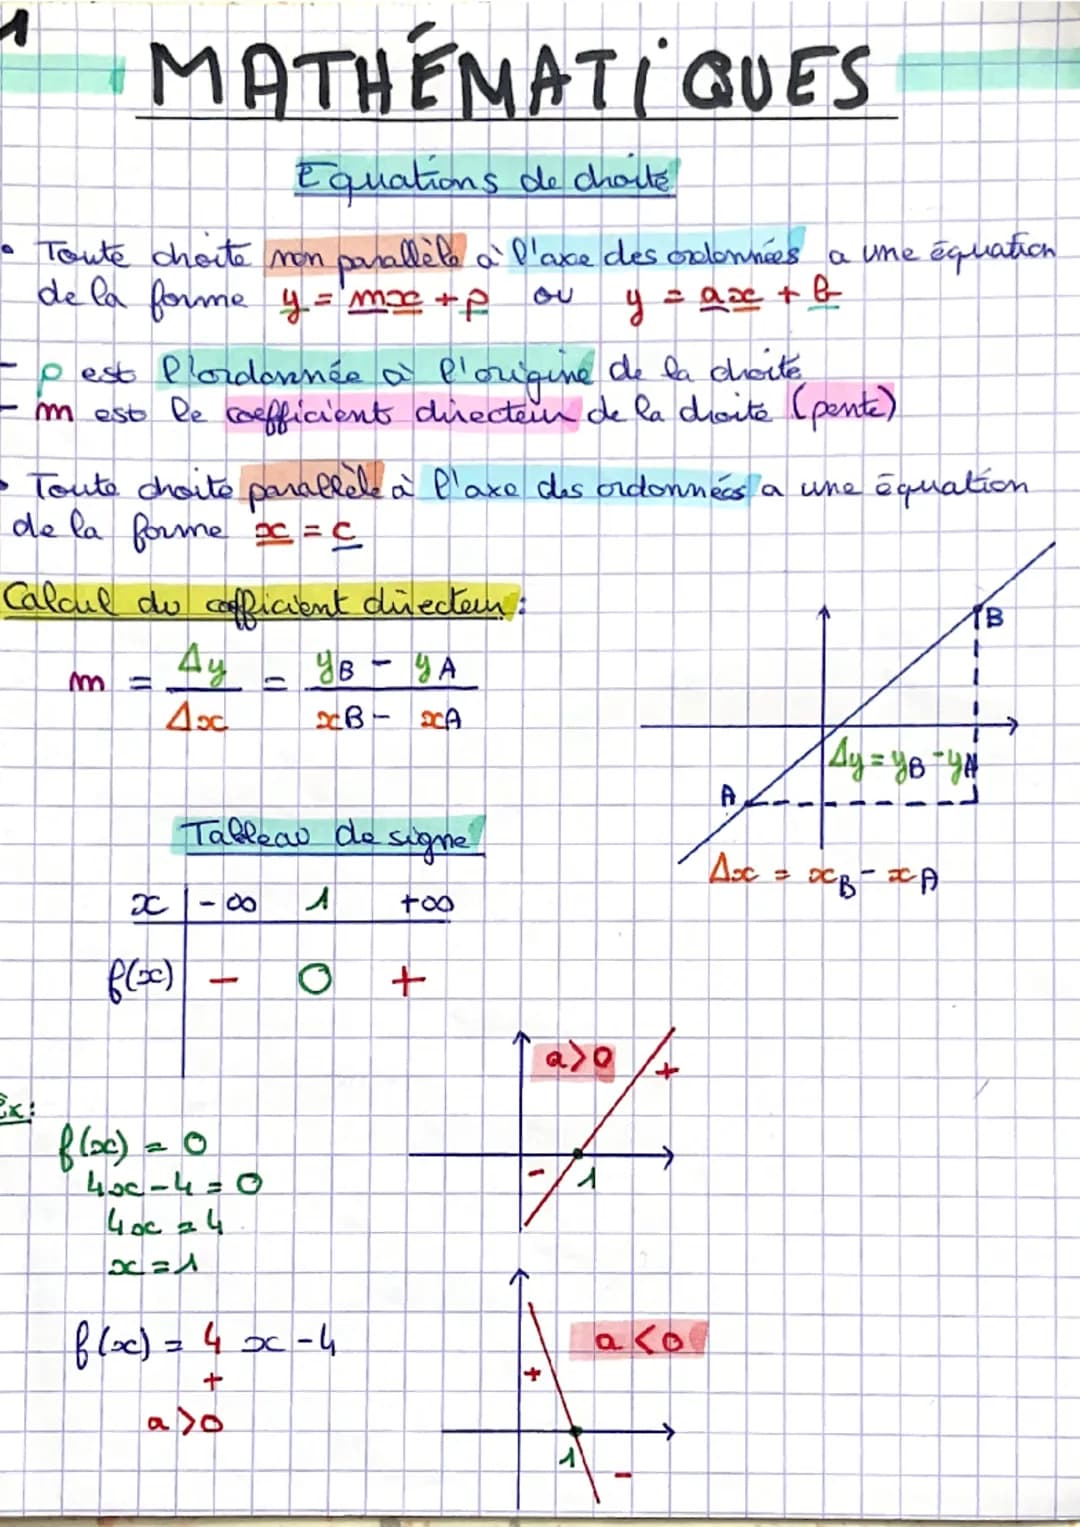 1
MATHÉMATIQUES
Equations de droite
• Toute droite non parallèle à l'axe des ordonnées a une équation
de la forme y = mx + p ou y = ax + b
- p est l'ordonnée à l'origine de la droite
- m est le coefficient directeur de la droite (pente)
• Toute droite parallèle à l'axe des ordonnées a une équation
de la forme x = c
Calcul du cofficient directeur :
m = Δy / Δx = yB - yA / xB - xA
B
Δy = yB - yA
A
Δx = xB - xA
Tableau de signe
x | -∞ 1 +∞
f(x) | - 0 +
a>0
+
-
1
Ex:
f(x) = 0
4x - 4 = 0
4x = 4
x = 1
f(x) = 4 x - 4
+
a >0
a <0
+
1
-